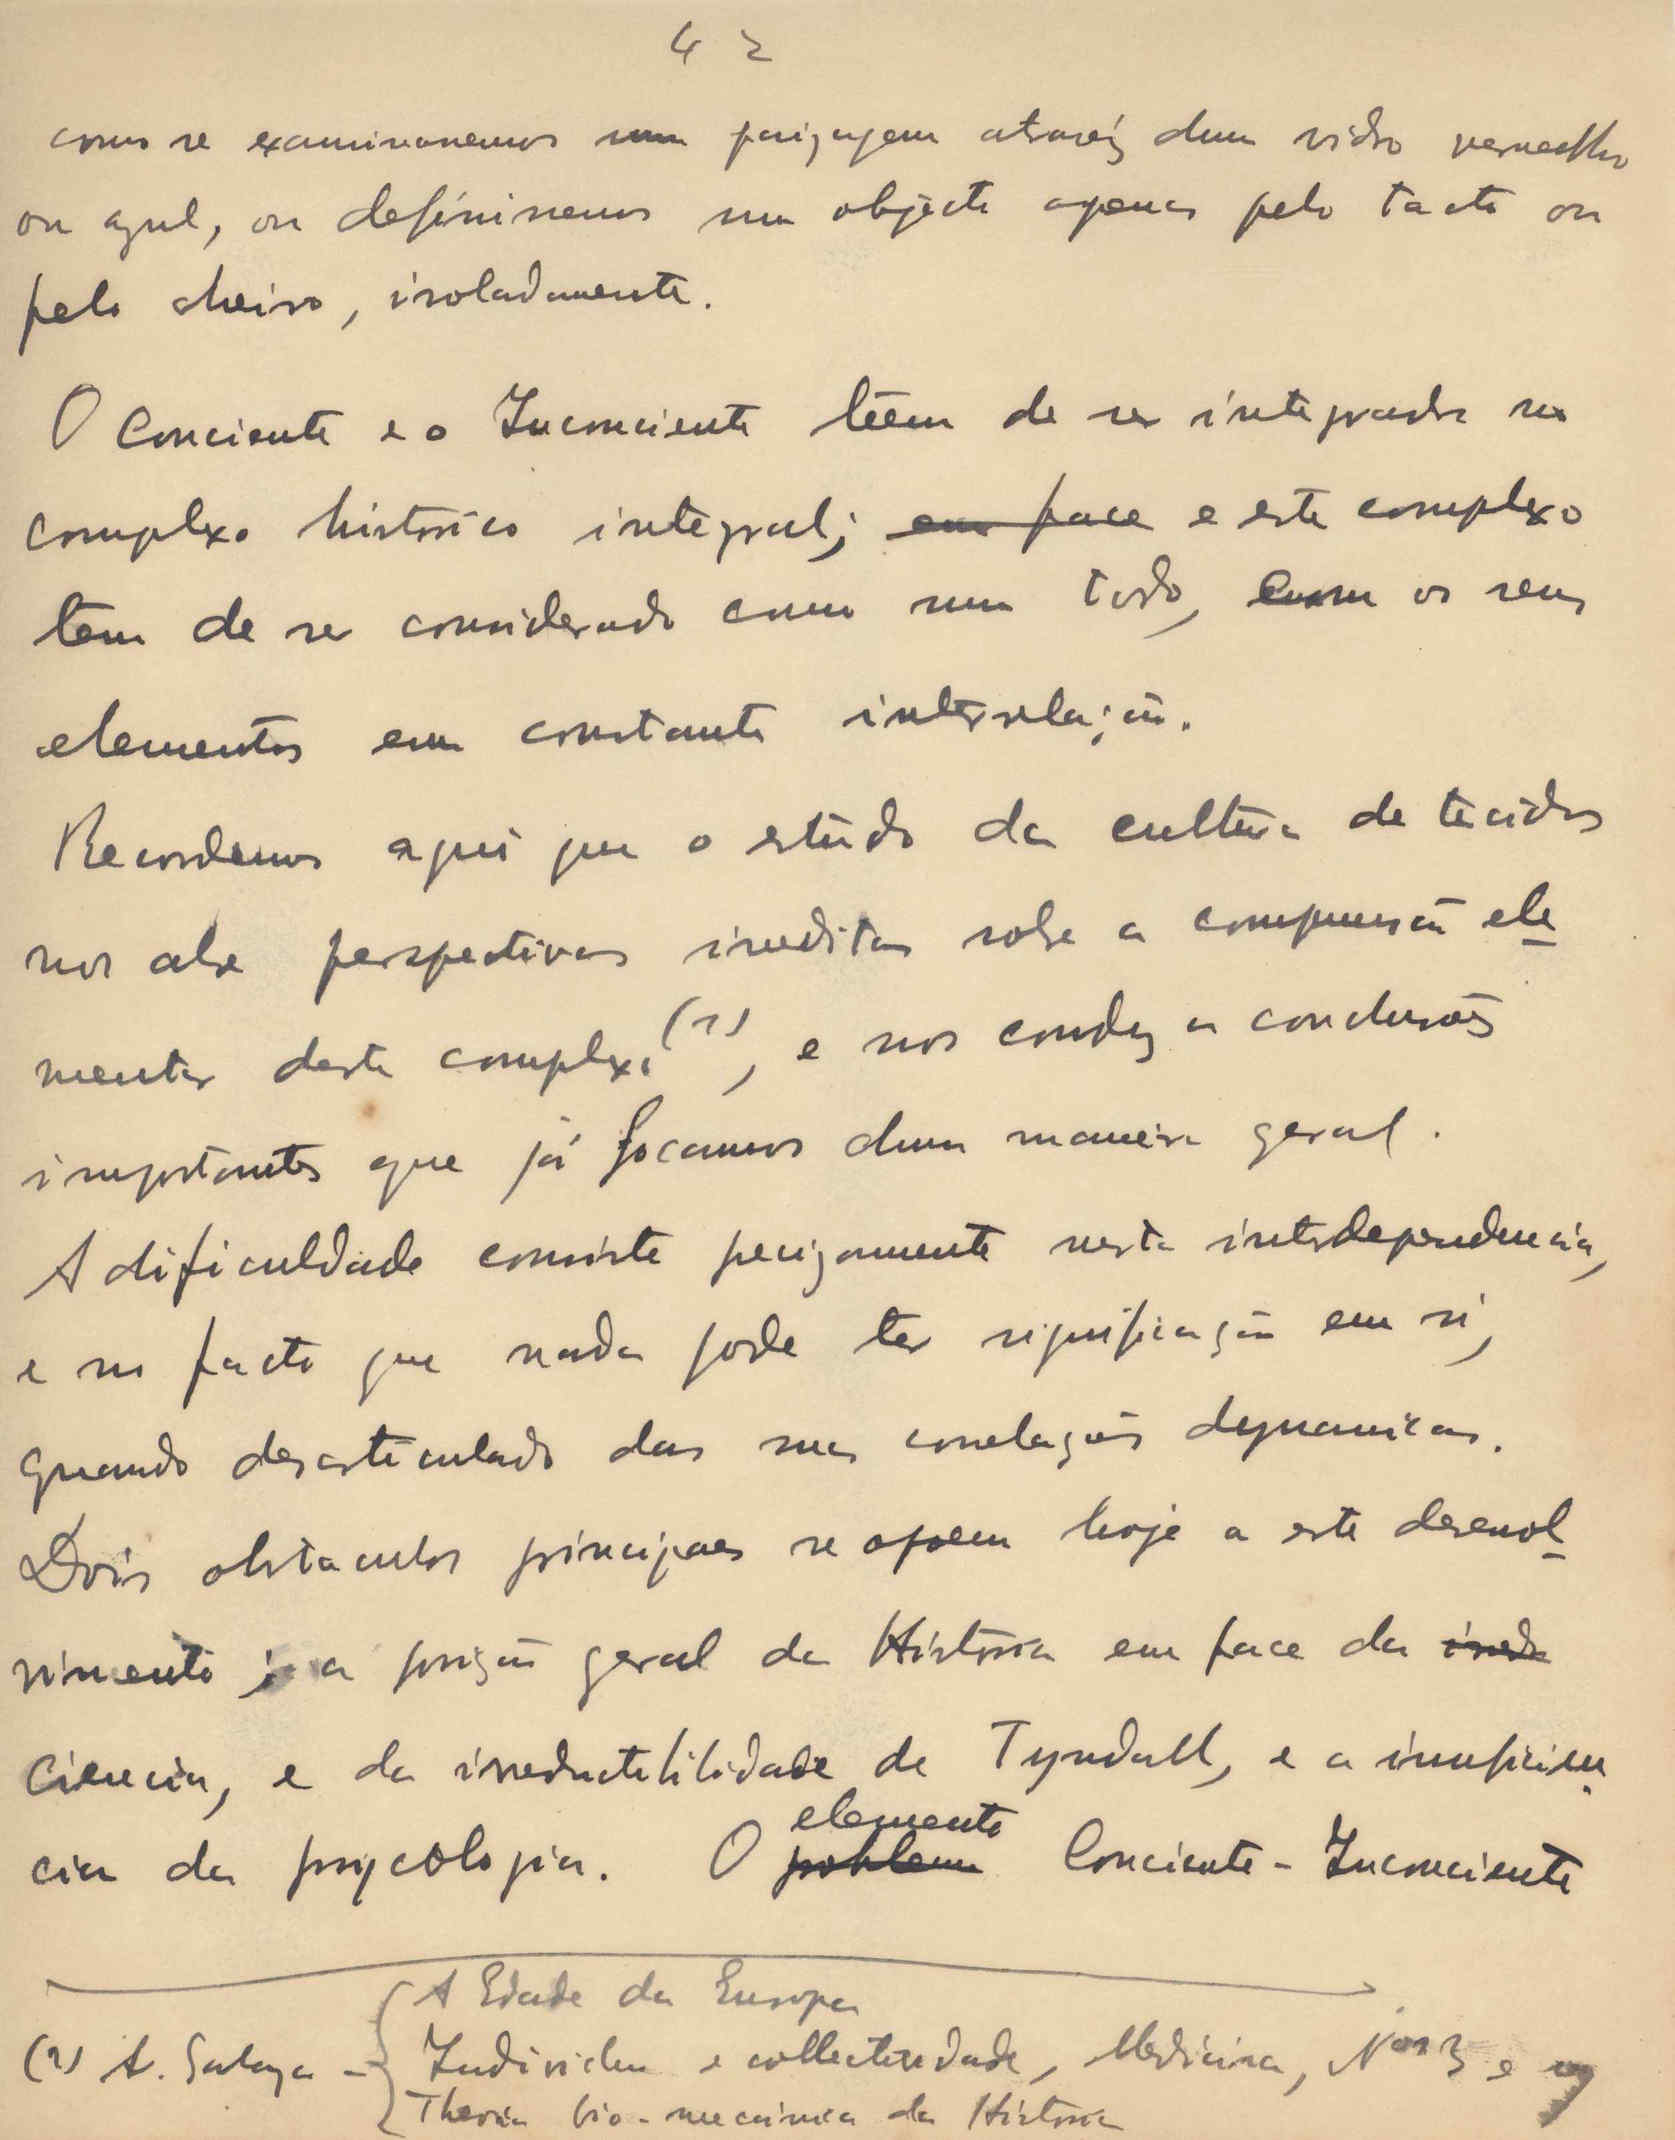 42
como se examinassemos uma paizagem atravéz dum vidro vermelho
ou azul, ou definissemos um objecto apenas pelo tacto ou
pelo cheiro, isoladamente.
O Conciente e o Inconciente têem de ser integrados no
complexo historico integral; em face e este complexo
tem de ser considerado como um todo, com os seus
elementos em constante interrelação.
Recordemos aqui que o estudo da cultura de tecidos
nos abre perspectivas ineditas sobre a compreensão ele
mentar deste complexo (1), e nos conduz a conclusões
importantes que já focamos duma maneira geral.
A dificuldade consiste precizamente nesta interdependencia,
e no facto que nada pode ter significação em si,
quando desarticulado das suas correlações dynamicas.
Dois obstaculos principaes se opoem hoje a este desenvol
vimento; a posição geral da Historia em face da
Ciencia, e da irreductibilidade de Tyndall, e a insuficien
cia da psycologia. O problema elemento Conciente-Inconciente
A Edade da Europa
(1) A. Salazar - Individuo e collectividade, Medicina, Nos 3 e
Theoria bio-mecanica da Historia